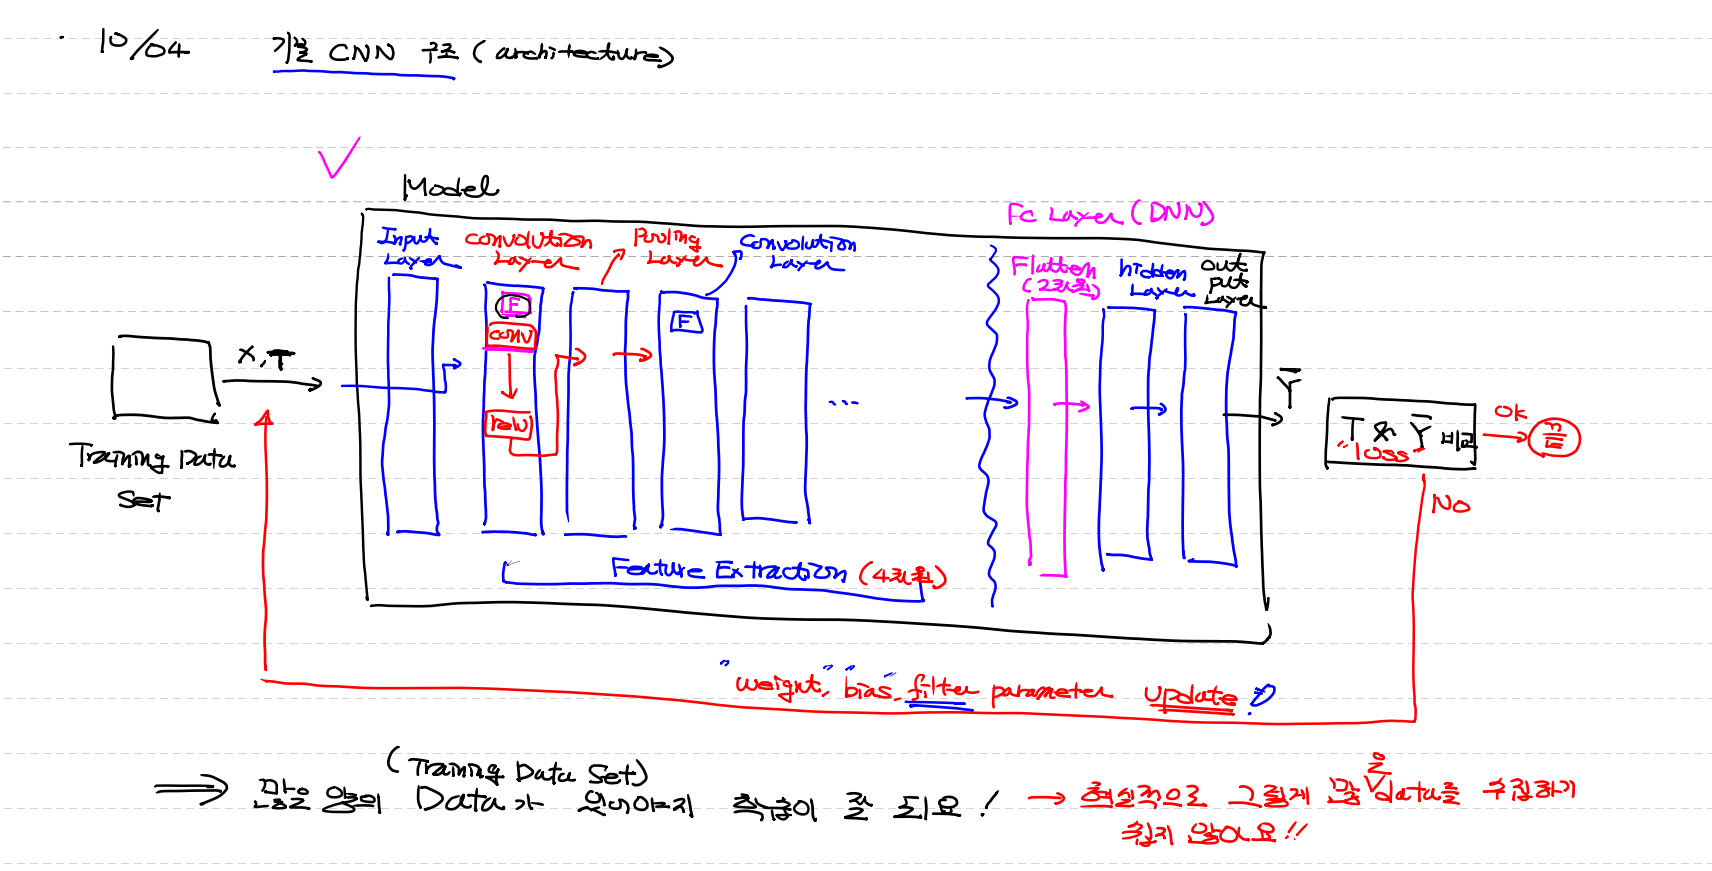 10/04 기본 CNN 구조 (architecture)
Model
FC Layer (DNN)
Input Layer
convolution Layer
Pooling Layer
Convolution Layer
Flatten (2차원)
hidden Layer
out put Layer
F
conv
relu
F
...
X, T
Training Data Set
Y
T & Y 비교
"loss"
OK
끝
No
Feature Extraction (4차원)
"weight", "bias", filter parameter update!
(Training Data Set)
⇒ 많은 양의 Data가 있어야지 학습이 잘 되요!
→ 현실적으로 그렇게 많은 data를 수집하기
쉽지 않아요!!